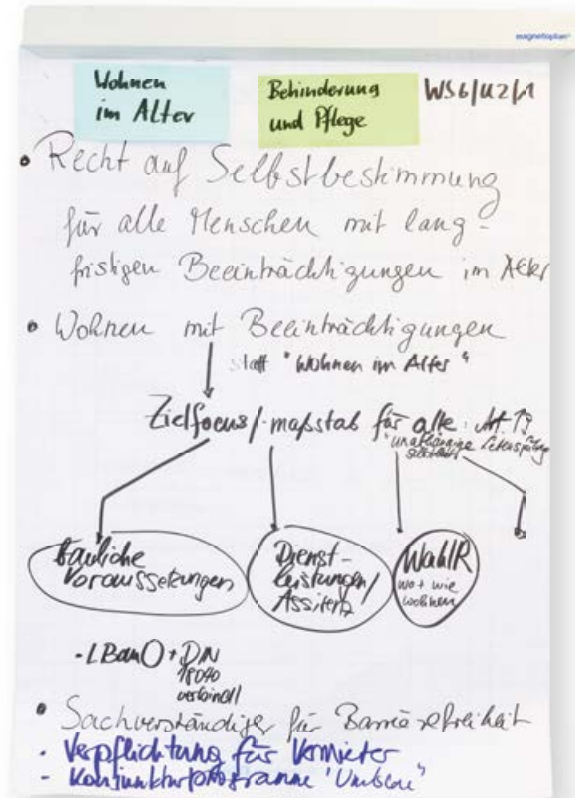 magnetoplan
Wohnen
im Alter
Behinderung
und Pflege
WS6/U2/1
• Recht auf Selbstbestimmung
für alle Menschen mit lang-
fristigen Beeinträchtigungen im Alter
• Wohnen mit Beeinträchtigungen
statt "Wohnen im Alter"
Zielfocus/-maßstab für alle: Art. 19
"unabhängige Lebensführung
bauliche
Voraussetzungen
Dienst-
leistungen/
Assitenz
WahlR
wo + wie
wohnen
- LBauO + DIN
18040
verbindl
• Sachverständiger für Barrierefreiheit
- Verpflichtung für Vermieter
- Konjunkturprogramme